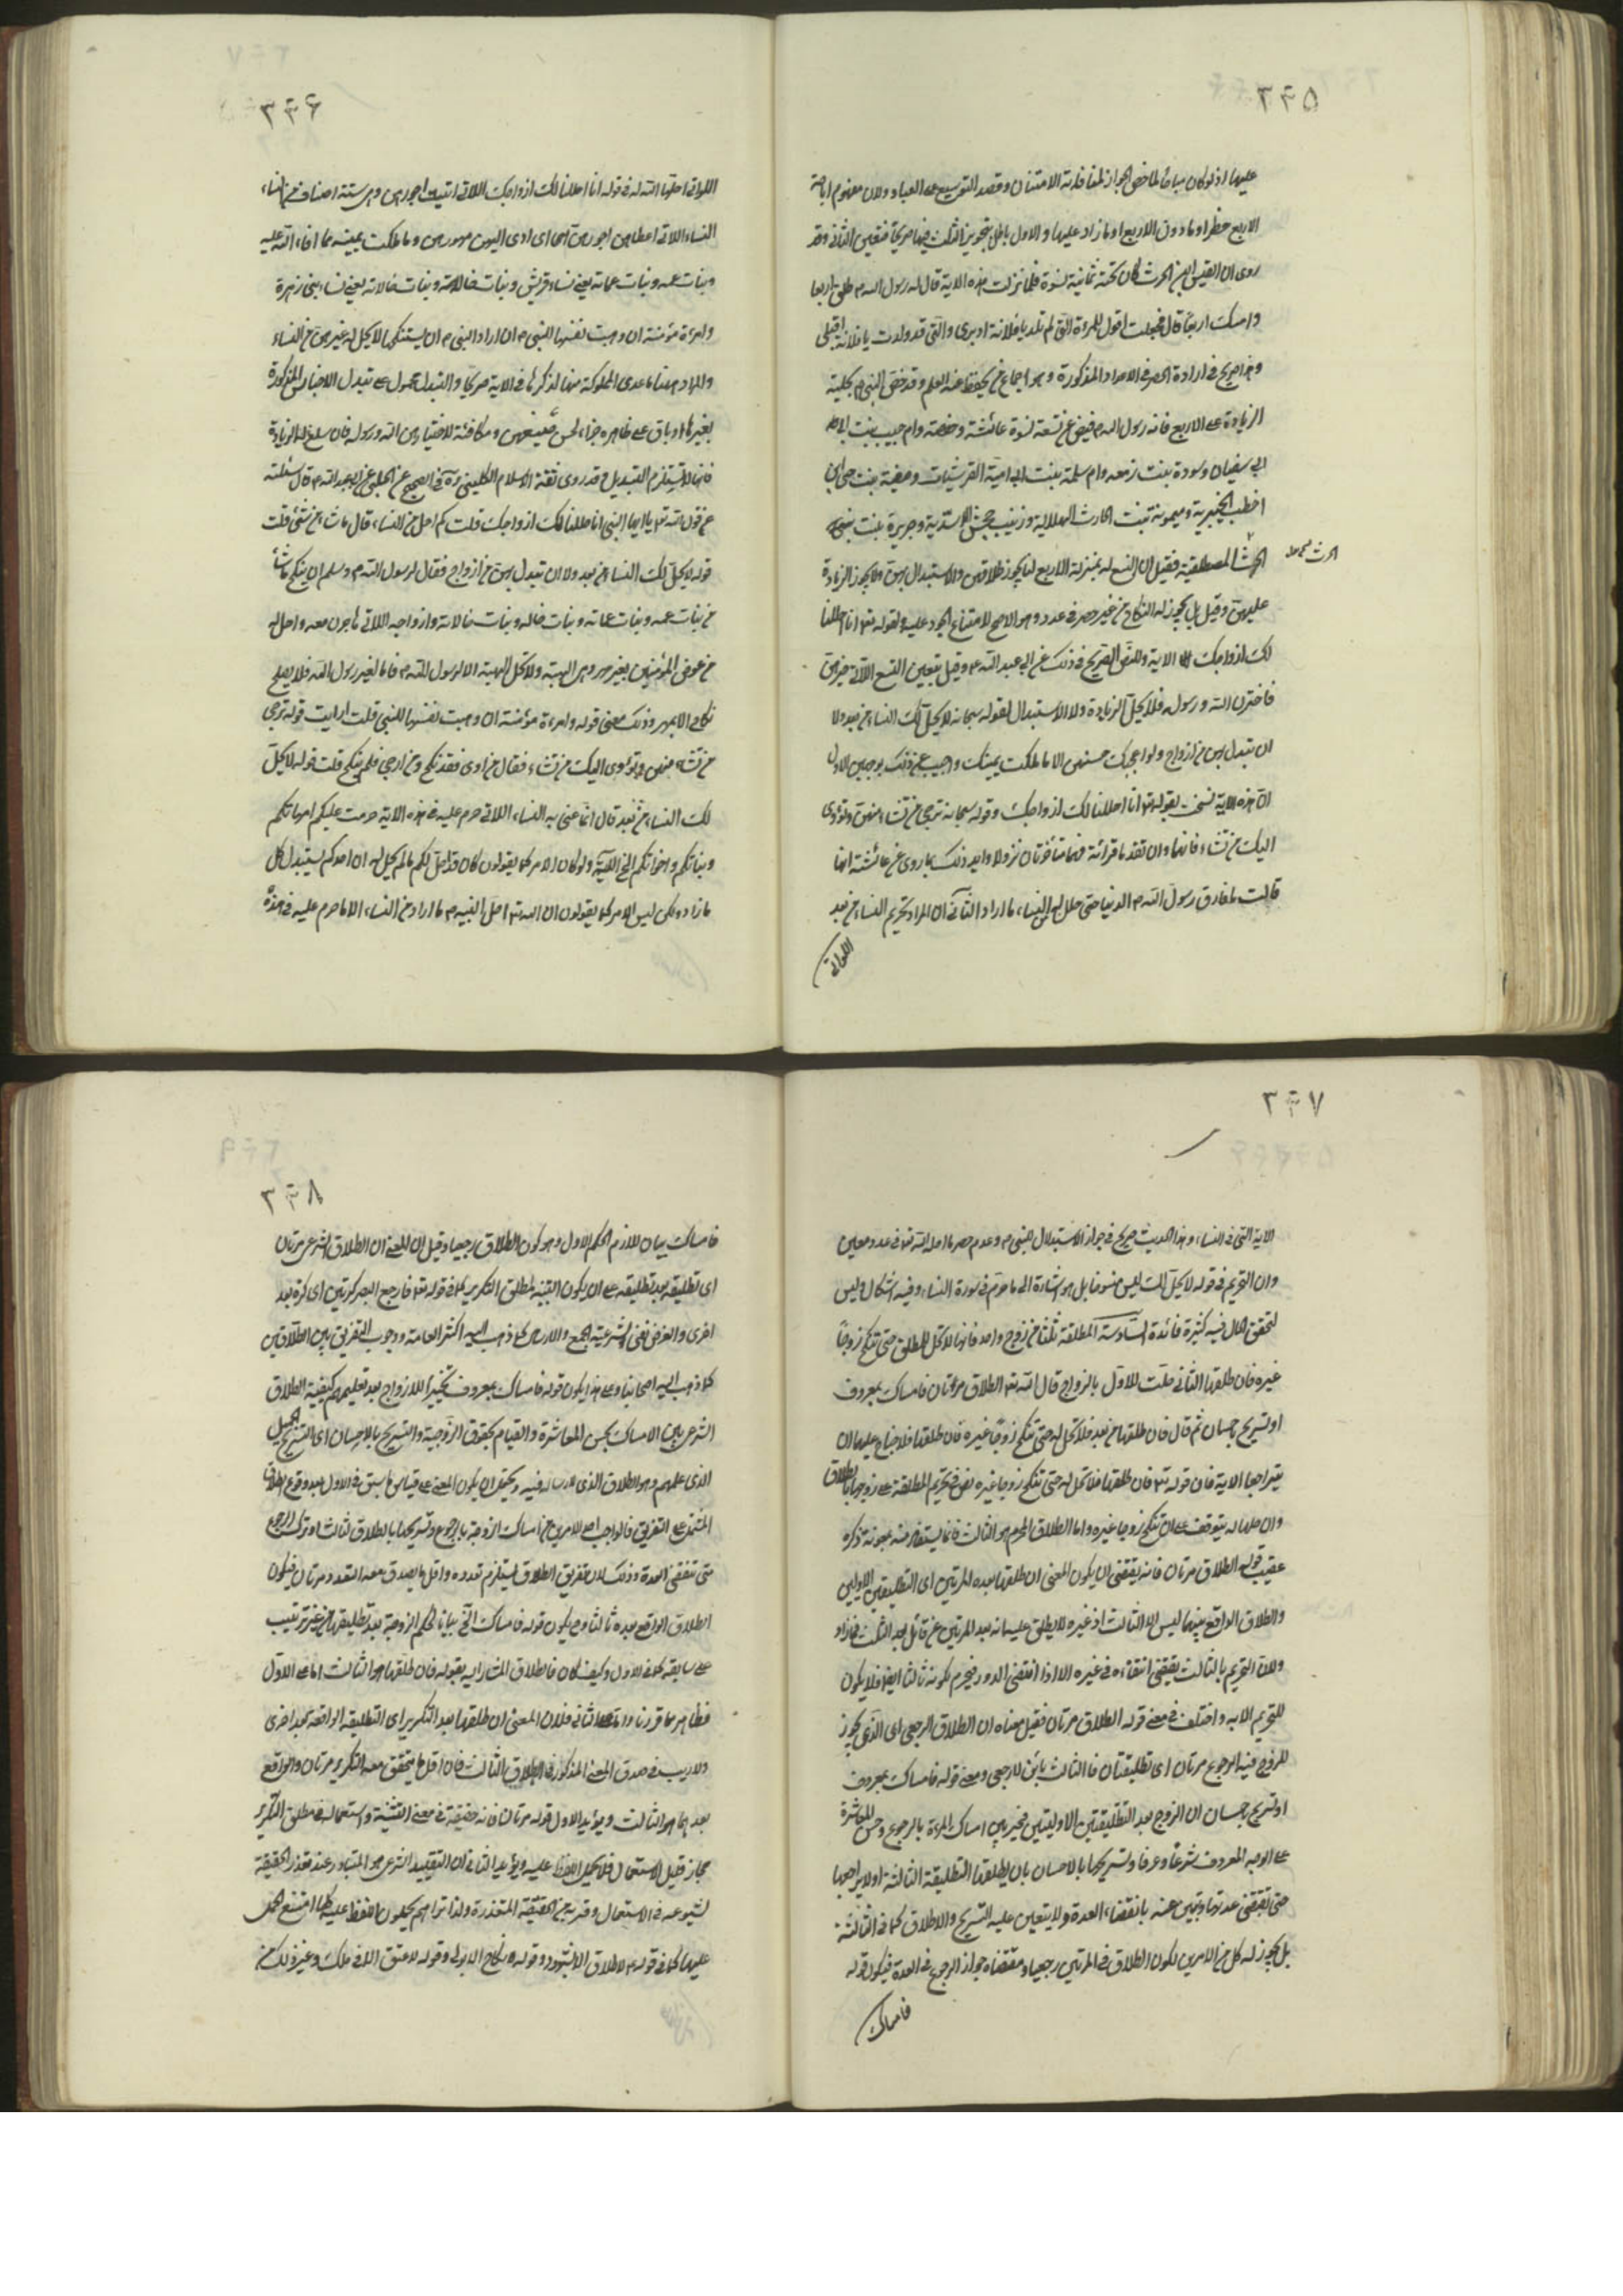 ٣٤٥
عليها اذ لو كان مباحا لما خص الجواز لمنافاته الامتنان وقصد التوسيع على العباد ولان مفهوم اباحة
الاربع حظر او ما دون الاربع او ما زاد عليها والاول باطل بتجويز الثلث فيها صريحا فتعين الثانى وقد
روى ان القيس ابن الحرث كان تحته ثمانية نسوة فلما نزلت هذه الاية قال له رسول الله ص طلق اربعا
وامسك اربعا قال فجعلت اقول للمرءة التى لم تلد يا فلانة ادبرى والتى قد ولدت يا فلانة اقبلى
وهذا صريح فى ارادة الحصر فى الاعداد المذكورة وهو اجماع من يحفظ عنه العلم وقد خص النبى ص بحلية
الزيادة على الاربع فانه رسول الله ص قبض عن تسعة نسوة عائشة وحفصة وام حبيب بنت
ابى سفيان وسودة بنت زمعه وام سلمة بنت ابى امية القرشيات وصفية بنت حى ابن
اخطب الخيبرية وميمونة بنت الحارث الهلالية وزينب بنت جحش الاسدية وجويرية بنت
الحرث المصطلقية فقيل ان التسع له بمنزلة الاربع لنا يجوز طلاقهن والاستبدال بهن ولا يجوز الزيادة
عليهن وقيل بل يجوز له النكاح من غير حصر فى عدد وهو الاصح لامتناع الجور عليه ولقوله تعالى انا احللنا
لك ازواجك الاية وللنص الصريح فى ذلك عن ابى عبد الله ع وقيل بتعيين التسع اللاتى خيرهن
فاخترن الله ورسوله فلا يحل الزيادة ولا الاستبدال لقوله سبحانه لا يحل لك النساء من بعد ولا
ان تبدل بهن من ازواج ولو اعجبك حسنهن الا ما ملكت يمينك واجيب عن ذلك بوجهين الاول
ان هذه الاية نسخت بقوله تعالى انا احللنا لك ازواجك وقوله سبحانه ترجى من تشاء منهن وتؤوى
اليك من تشاء فانها وان تقدما قرائة فهما متأخرتان نزولا وايد ذلك بما روى عن عائشة انها
قالت لما فارق رسول الله ص الدنيا حتى حلل له من النساء ما اراد الثانى ان المراد تحريم النساء من بعد
اللواتى
٣٤٦
اللواتى احلها الله له فى قوله انا احللنا لك ازواجك اللاتى اتيت اجورهن وهى ستة اصناف من النساء
النساء اللاتى اعطاهن اجورهن اى ادى اليهن مهورهن وما ملكت يمينه مما افاء الله عليه
وبنات عمه وبنات عماته يعنى نساء قريش وبنات خاله وبنات خالاته يعنى نساء بنى زهرة
وامرءة مؤمنة ان وهبت نفسها للنبى ص ان اراد النبى ص ان يستنكحها لا يحل له غيرهن من النساء
والمراد هنا ما عدى المملوكة منها لذكرها فى الاية صريحا والتبدل محمول على تبدل الاجناس المذكورة
بغيرها او باق على ظاهره جزاء لحسن صنيعهن ومكافئة لاختيارهن الله ورسوله
فانها لا تستلزم التبديل وقد روى ثقة الاسلام الكلينى ره فى الصحيح عن الحلبى عن ابى عبد الله ع قال سئلته
عن قول الله تعالى يا ايها النبى انا احللنا لك ازواجك قلت كم احل له من النساء قال ما شاء من شئ قلت
قوله لا يحل لك النساء من بعد ولا ان تبدل بهن من ازواج فقال لرسول الله ص ان ينكح ما شاء
من بنات عمه وبنات عماته وبنات خاله وبنات خالاته وازواجه اللاتى هاجرن معه واحل له
من عرض المؤمنين بغير مهر وهى الهبة ولا تحل الهبة الا لرسول الله ص فاما لغير رسول الله فلا يصلح
نكاح الا بمهر وذلك معنى قوله وامرءة مؤمنة ان وهبت نفسها للنبى قلت ارايت قوله ترجى
من تشاء منهن وتؤوى اليك من تشاء فقال من اوى فقد نكح ومن ارجى فلم ينكح قلت قوله لا يحل
لك النساء من بعد قال انما عنى به النساء اللاتى حرم عليه فى هذه الاية حرمت عليكم امهاتكم
وبناتكم واخواتكم الخ الاية ولو كان الامر كما يقولون كان قد احل لكم ما لم يحل له ان احدكم يستبدل كل
ما اراد ولكن ليس الامر كما يقولون ان الله تعالى احل لنبيه ص ما اراد من النساء الا ما حرم عليه فى هذه
٣٤٧
الاية التى فى النساء وهذا الحديث صريح فى جواز الاستبدال للنبى ص وعدم حصر ما احل الله له فى عدد معين
وان التحريم فى قوله لا يحل لك ليس منسوخا بل هو اشارة الى ما حرم فى سورة النساء وفيه اشكال وليس
لتحقق الحال فيه كثيرة فائدة السادسة المطلقة ثلثا من زوج واحد فانها لا تحل للمطلق حتى تنكح زوجا
غيره فان طلقها الثانى حلت للاول بالزواج قال الله تعالى الطلاق مرتان فامساك بمعروف
او تسريح باحسان ثم قال فان طلقها من بعد فلا تحل له حتى تنكح زوجا غيره فان طلقها فلا جناح عليهما ان
يتراجعا الاية فان قوله تعالى فان طلقها فلا تحل له حتى تنكح زوجا غيره نص فى تحريم المطلقة على زوجها بالطلاق
وان حلها له يتوقف على ان تنكح زوجا غيره واما الطلاق المحرم هو الثالث فانما يستفاد منه بمعونة ذكره
عقيب قوله الطلاق مرتان فانه يقتضى ان يكون المعنى ان طلقها بعد المرتين اى التطليقتين الاوليين
والطلاق الواقع بعدهما ليس الا الثالث اذ غيره لا يطلق عليه انه بعد المرتين
ولان التحريم بالثالث يقتضى انتفائه فى غيره الا اذا اقتضى الدور فيحرم لكونه ثالثا ايضا فلا يكون
للتحريم الا به واختلف فى معنى قوله الطلاق مرتان فقيل معناه ان الطلاق الرجعى اى الذى يجوز
للزوج فيه الرجوع مرتان اى تطليقتان فالثالث باين لا رجعى ومعنى قوله فامساك بمعروف
او تسريح باحسان ان الزوج بعد التطليقتين الاوليتين مخير بين امساك المرءة بالرجوع وحسن المعاشرة
على الوجه المعروف شرعا وعرفا وتسريحها بالاحسان بان يطلقها التطليقة الثالثة او لا يراجعها
حتى تنقضى عدتها وتبين منه بانقضاء العدة ولا يتعين عليه التسريح والاطلاق كما فى الثالثة
بل يجوز له كل من الامرين لكون الطلاق فى المرتين رجعيا ومقتضاه جواز الرجوع فى العدة فيكون قوله
فامساك
٣٤٨
فامساك بيان للازم الحكم الاول وهو كون الطلاق رجعيا وقيل ان المعنى ان الطلاق الشرعى مرتان
اى تطليقة بعد تطليقة على ان يكون التثنية لمطلق التكرير كما فى قوله تعالى فارجع البصر كرتين اى كرة بعد
اخرى والغرض نفى شرعية الجمع والارسال كما ذهب اليه اكثر العامة ووجوب التفريق بين الطلاقين
كما ذهب اليه اصحابنا وعلى هذا يكون قوله فامساك بمعروف تخييرا للازواج بعد تعليمهم كيفية الطلاق
الشرعى بين الامساك بحسن المعاشرة والقيام بحقوق الزوجية والتسريح بالاحسان اى التسريح الجميل
الذى علمهم وهو الطلاق الذى لا ارسال فيه ويحتمل ان يكون المعنى على قياس ما سبق فى الاول بعد وقوع الطلاق
المشتمل على التفريق فالواجب احد الامرين من امساك الزوجة بالرجوع وتسريحها بالطلاق ثالثا او ترك الرجوع
حتى تنقضى العدة وذلك لان تفريق الطلاق يستلزم تعدده واقل ما يصدق معه التعدد مرتان فيكون
الطلاق الواقع بعده ثالثا وح يكون قوله فامساك الخ بيانا لحكم الزوجة بعد تطليقها من غير ترتيب
على سابقه كما فى الاول وكيف كان فالطلاق المشار اليه بقوله فان طلقها هو الثالث اما على الاول
فظاهر مما قررناه واما على الثانى فلان المعنى ان طلقها بعد التكرير اى التطليقة الواقعة بعد اخرى
ولا ريب فى صدق المعنى المذكور فى الطلاق الثالث فان اقل ما يتحقق معه التكرير مرتان والواقع
بعدهما هو الثالث ويؤيد الاول قوله مرتان فانه حقيقة فى معنى التثنية واستعماله فى مطلق التكرير
مجاز قليل الاستعمال فلا يحمل اللفظ عليه ويؤيد الثانى ان التقييد الشرعى هو المتبادر عند تعذر الحقيقة
لشيوعه فى الاستعمال وقربه من الحقيقة المتعذرة ولذا تراهم يحملون اللفظ عليه كلما امتنع الحمل
عليها كما فى قوله ع لا طلاق الا بشهود وقوله لا نكاح الا بولى وقوله لا عتق الا فى ملك وغير ذلك من